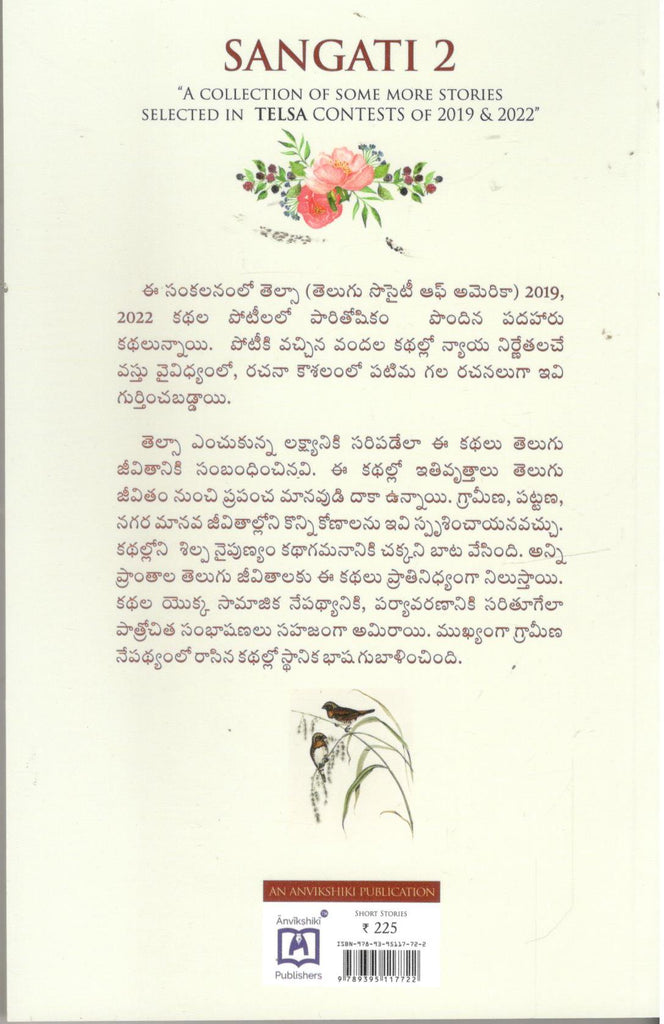 SANGATI 2
"A COLLECTION OF SOME MORE STORIES
SELECTED IN TELSA CONTESTS OF 2019 & 2022"
ఈ సంకలనంలో తెల్సా (తెలుగు సొసైటీ ఆఫ్ అమెరికా) 2019,
2022 కథల పోటీలలో పారితోషికం పొందిన పదహారు
కథలున్నాయి. పోటీకి వచ్చిన వందల కథల్లో న్యాయ నిర్ణేతలచే
వస్తు వైవిధ్యంలో, రచనా కౌశలంలో పటిమ గల రచనలుగా ఇవి
గుర్తించబడ్డాయి.
తెల్సా ఎంచుకున్న లక్ష్యానికి సరిపడేలా ఈ కథలు తెలుగు
జీవితానికి సంబంధించినవి. ఈ కథల్లో ఇతివృత్తాలు తెలుగు
జీవితం నుంచి ప్రపంచ మానవుడి దాకా ఉన్నాయి. గ్రామీణ, పట్టణ,
నగర మానవ జీవితాల్లోని కొన్ని కోణాలను ఇవి స్పృశించాయనవచ్చు.
కథల్లోని శిల్ప నైపుణ్యం కథాగమనానికి చక్కని బాట వేసింది. అన్ని
ప్రాంతాల తెలుగు జీవితాలకు ఈ కథలు ప్రాతినిధ్యంగా నిలుస్తాయి.
కథల యొక్క సామాజిక నేపథ్యానికి, పర్యావరణానికి సరితూగేలా
పాత్రోచిత సంభాషణలు సహజంగా అమిరాయి. ముఖ్యంగా గ్రామీణ
నేపథ్యంలో రాసిన కథల్లో స్థానిక భాష గుబాళించింది.
AN ANVIKSHIKI PUBLICATION
Ānvīkshikī TM
Publishers
SHORT STORIES
₹ 225
ISBN-978-93-95117-72-2
9 789395 117722